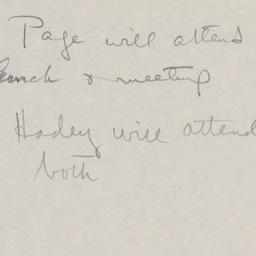 Page will attend
lunch & meeting
Hadey will attend
both